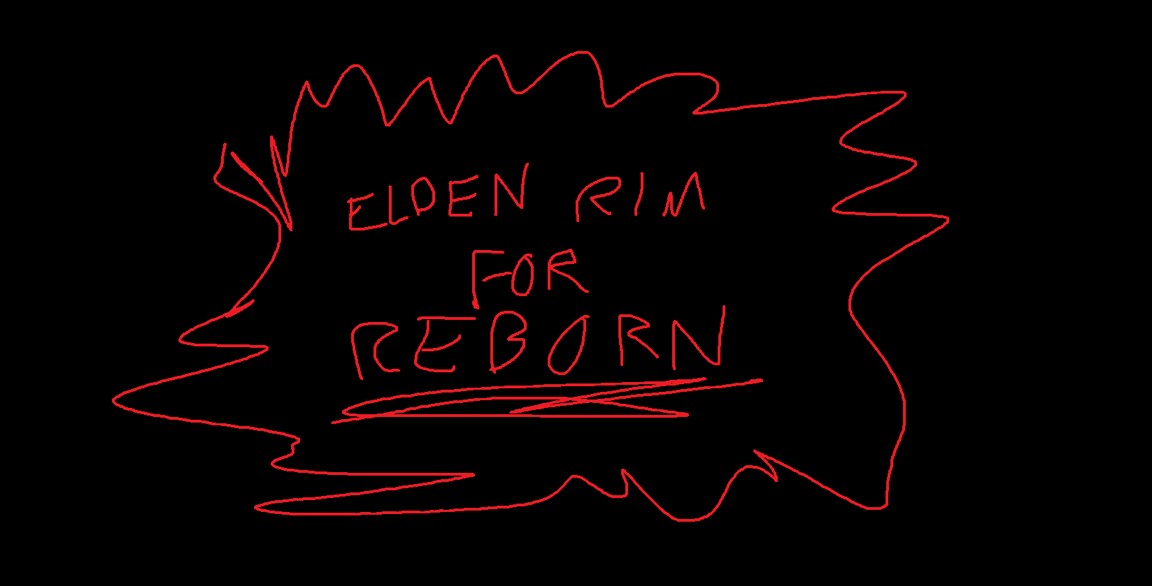 ELDEN RIM
FOR
REBORN